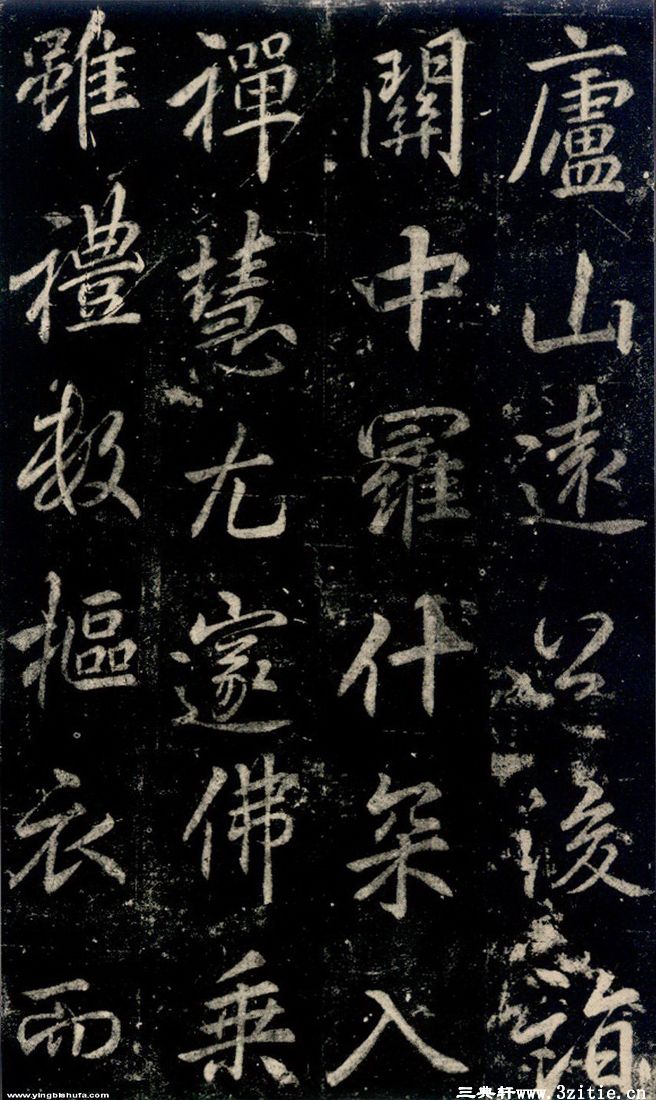 廬山遠公後詣
關中羅什罙入
禪慧尤邃佛乘
雖禮數摳衣而
www.yingbishufa.com
三典轩www.3zitie.cn